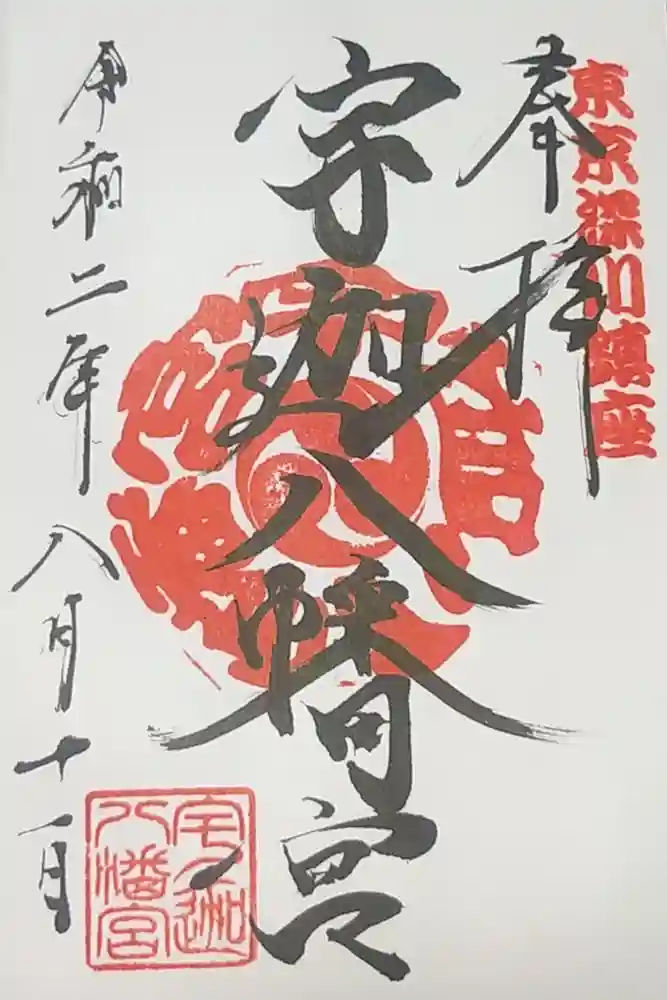 東京深川鎮座
奉拝
宇迦八幡宮
令和二年八月十一日
宇迦
八幡宮